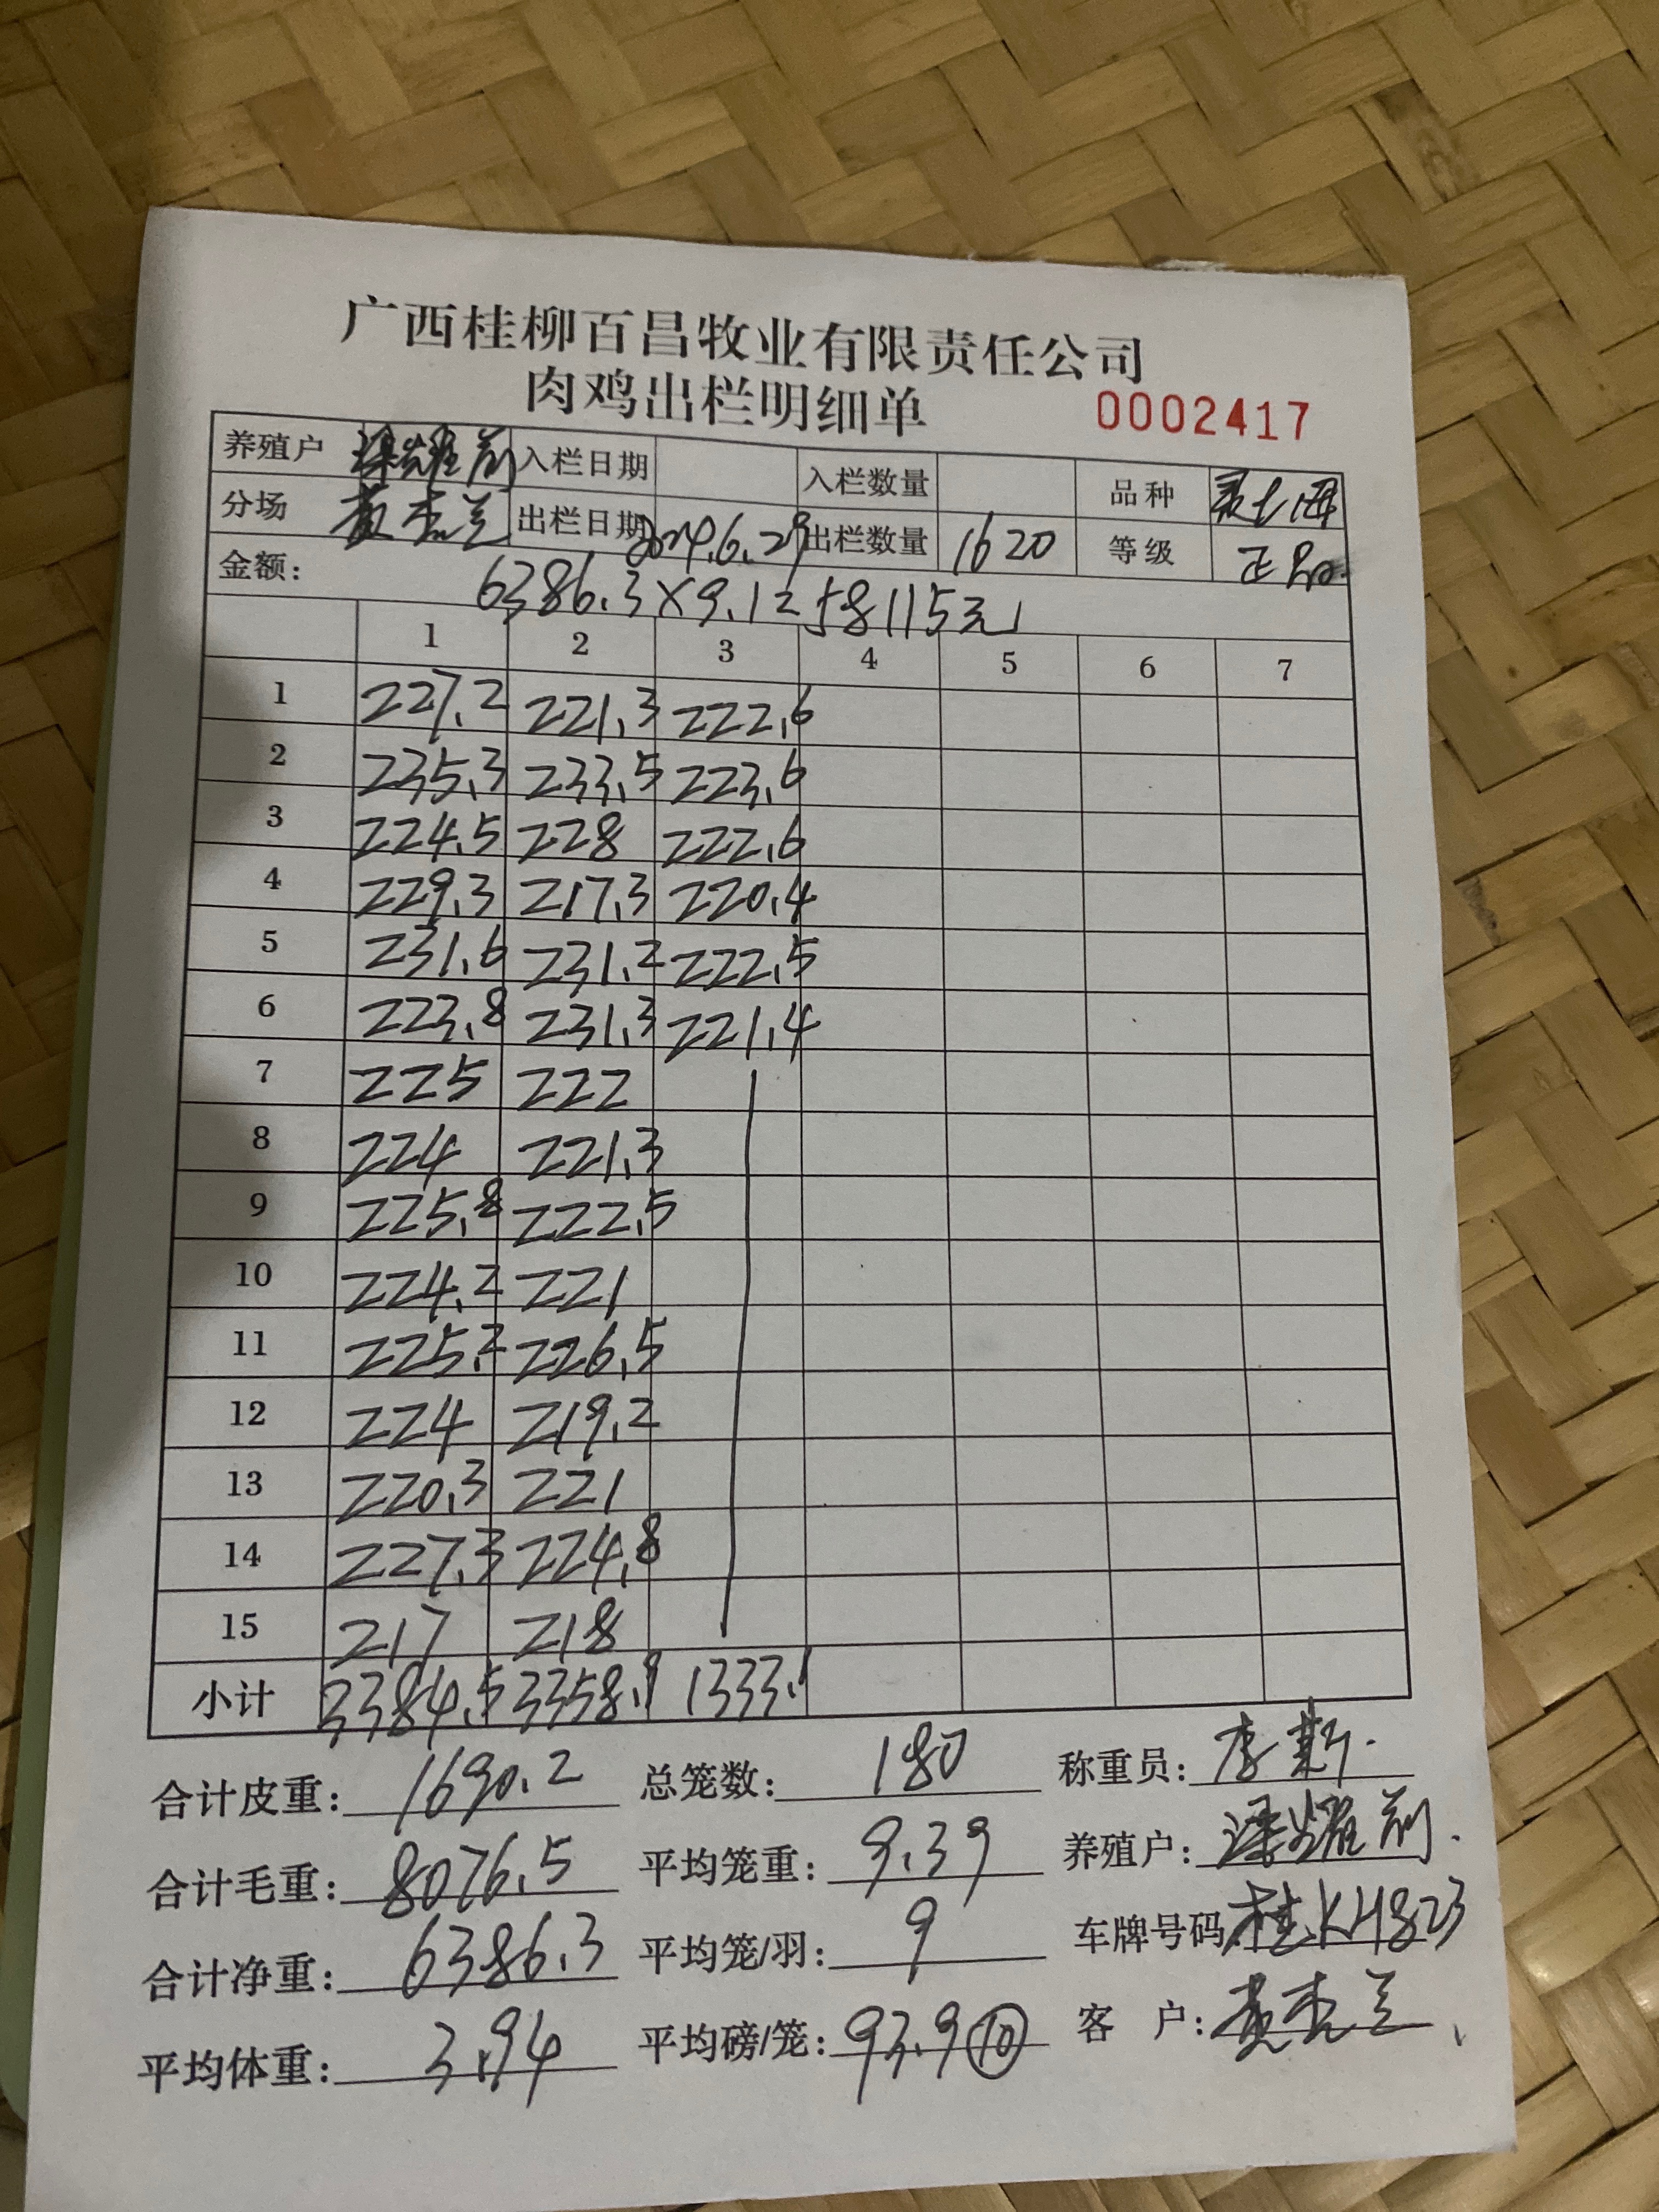 广西桂柳百昌牧业有限责任公司
肉鸡出栏明细单 0002417
养殖户 梁耀前 入栏日期 入栏数量 品种
分场 黄杰兰 出栏日期 2024.6.29 出栏数量 1620 等级 正品
金额: 6386.3×9.1=58115元
1 2 3 4 5 6 7
1 227.2 221.3 222.6
2 235.3 233.5 223.6
3 224.5 228 222.6
4 229.3 217.3 220.4
5 231.6 231.2 222.5
6 223.8 231.3 221.4
7 225 222
8 224 221.3
9 225.8 222.5
10 224.2 221
11 225.2 226.5
12 224 219.2
13 220.3 221
14 227.3 224.8
15 217 218
小计 3384.5 3358.9 1333.1
合计皮重: 1690.2 总笼数: 180 称重员: 李斯.
合计毛重: 8076.5 平均笼重: 9.39 养殖户: 梁耀前.
合计净重: 6386.3 平均笼/羽: 9 车牌号码: 桂KH823
平均体重: 3.94 平均磅/笼: 93.9 ⑩ 客 户: 黄杰兰